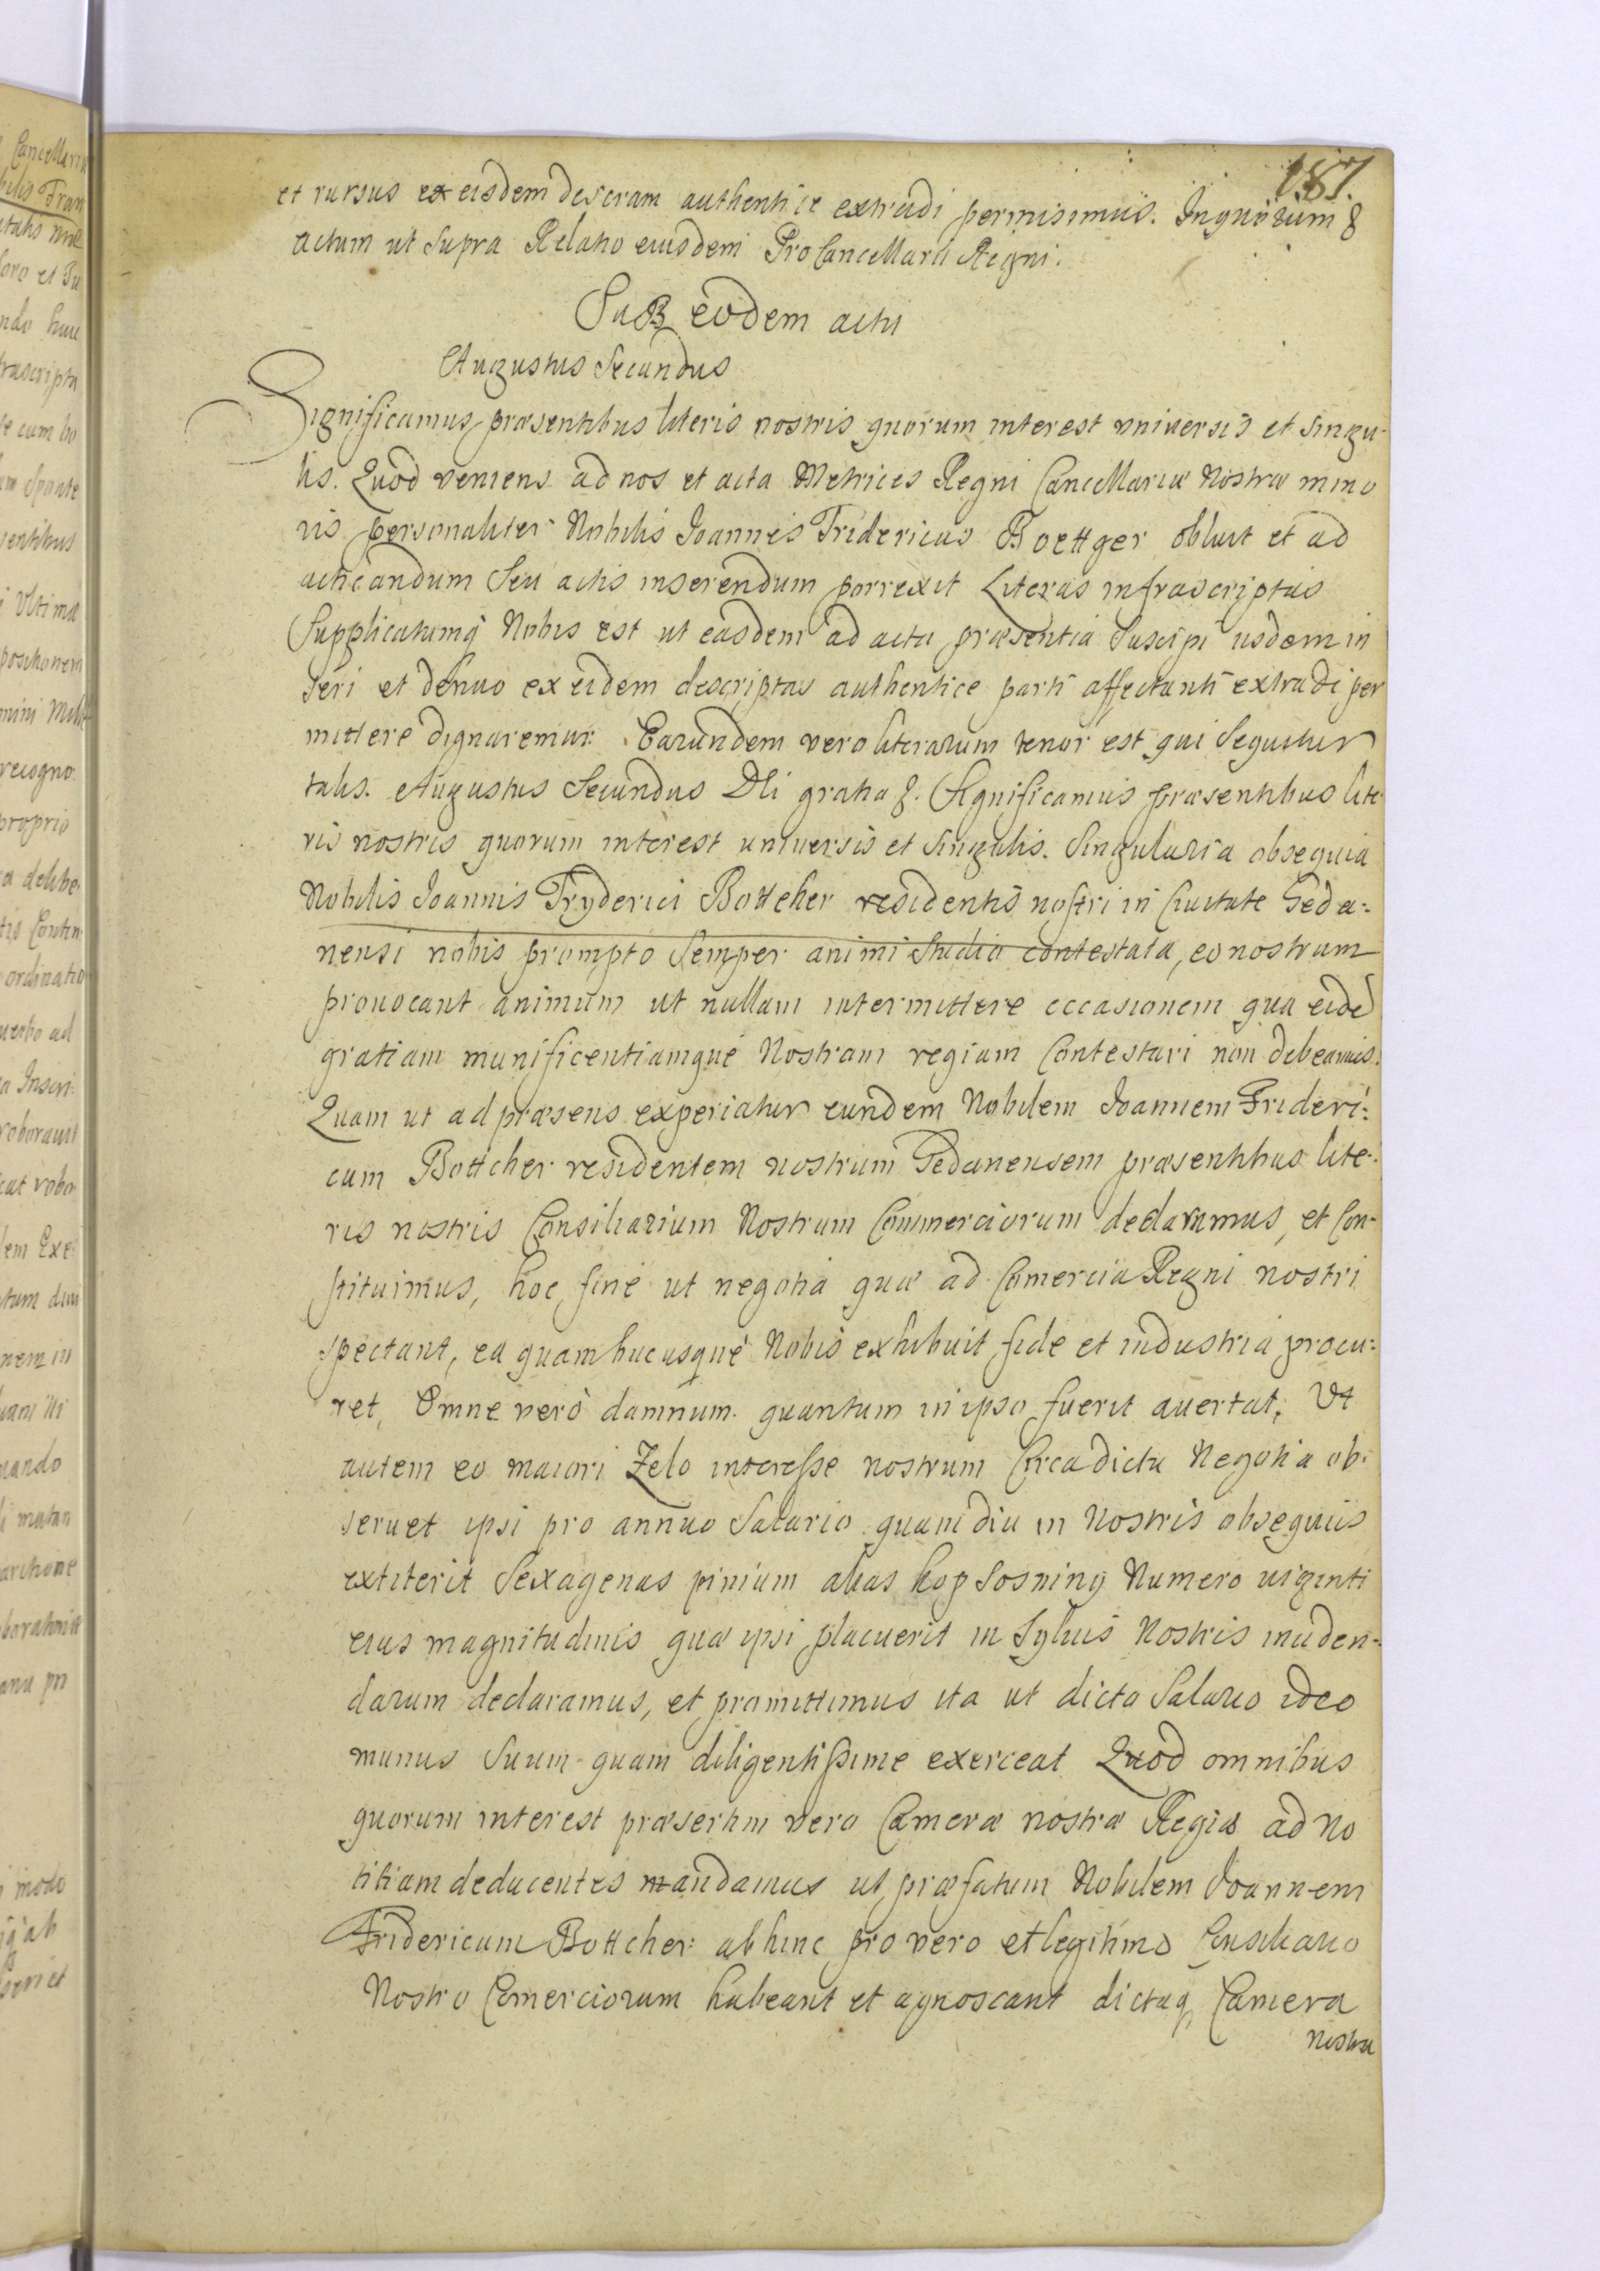 187.
et rursus ex eisdem descram authentice extradi permisimus. In quorum &
actum ut supra Relatio eiusdem ProCancellarii Regni.
Sub eodem actu
Augustus Secundus
Significamus præsentibus literis nostris quorum interest vniuersis et singu-
lis. Quod veniens ad nos et acta Metrices Regni Cancellariæ Nostræ mino
ris personaliter Nobilis Joannes Fridericus Boettger obtulit et ad
acticandum seu actis inserendum porrexit Literas infrascriptas
Supplicatumq Nobis est ut easdem ad acta præsentia Suscipi iisdem in
seri et denuo ex eidem descriptas authentice parti affectanti extradi per
mittere dignaremur. Earundem vero literarum tenor est qui Sequitur
talis. Augustus Secundus Dei gratia &. Significamus præsentibus lite
ris nostris quorum interest uniuersis et singulis. Singularia obsequia
Nobilis Joannis Fryderici Bottcher residentis nostri in Ciuitate Geda-
nensi nobis prompto Semper animi studio contestata, eo nostrum
prouocant animum ut nullam intermittere occasionem qua eidē
gratiam munificentiamque Nostram regiam Contestari non debeamus.
Quam ut ad præsens experiatur eundem Nobilem Joannem Frideri:
cum Bottcher residentem nostrum Gedanensem præsentibus lite:
ris nostris Consiliarium Nostrum Commerciorum declaramus, et Con-
stituimus, hoc fine ut negotia quæ ad Comercia Regni nostri
spectant, ea quam hucusque Nobis exhibuit fide et industria procu:
ret, Omne verò damnum quantum in ipso fuerit auertat, Vt
autem eo maiori Zelo interesse nostrum Circa dicta Negotia ob:
seruet ipsi pro annuo Salario quamdiu in Nostris obsequiis
extiterit Sexagenas pinium alias kop Sosniny Numero uiginti
eius magnitudinis quæ ipsi placuerit in Syluis Nostris inciden-
darum declaramus, et promittimus ita ut dicto Salario ideo
munus Suum quam diligentissime exerceat Quod omnibus
quorum interest præsertim vero Cameræ nostræ Regiæ ad No
titiam deducentes mandamus ut præfatum Nobilem Joannem
Fridericum Bottcher abhinc pro vero et legitimo Consiliario
Nostro Comerciorum habeant et agnoscant dictaq Camera
Nostra